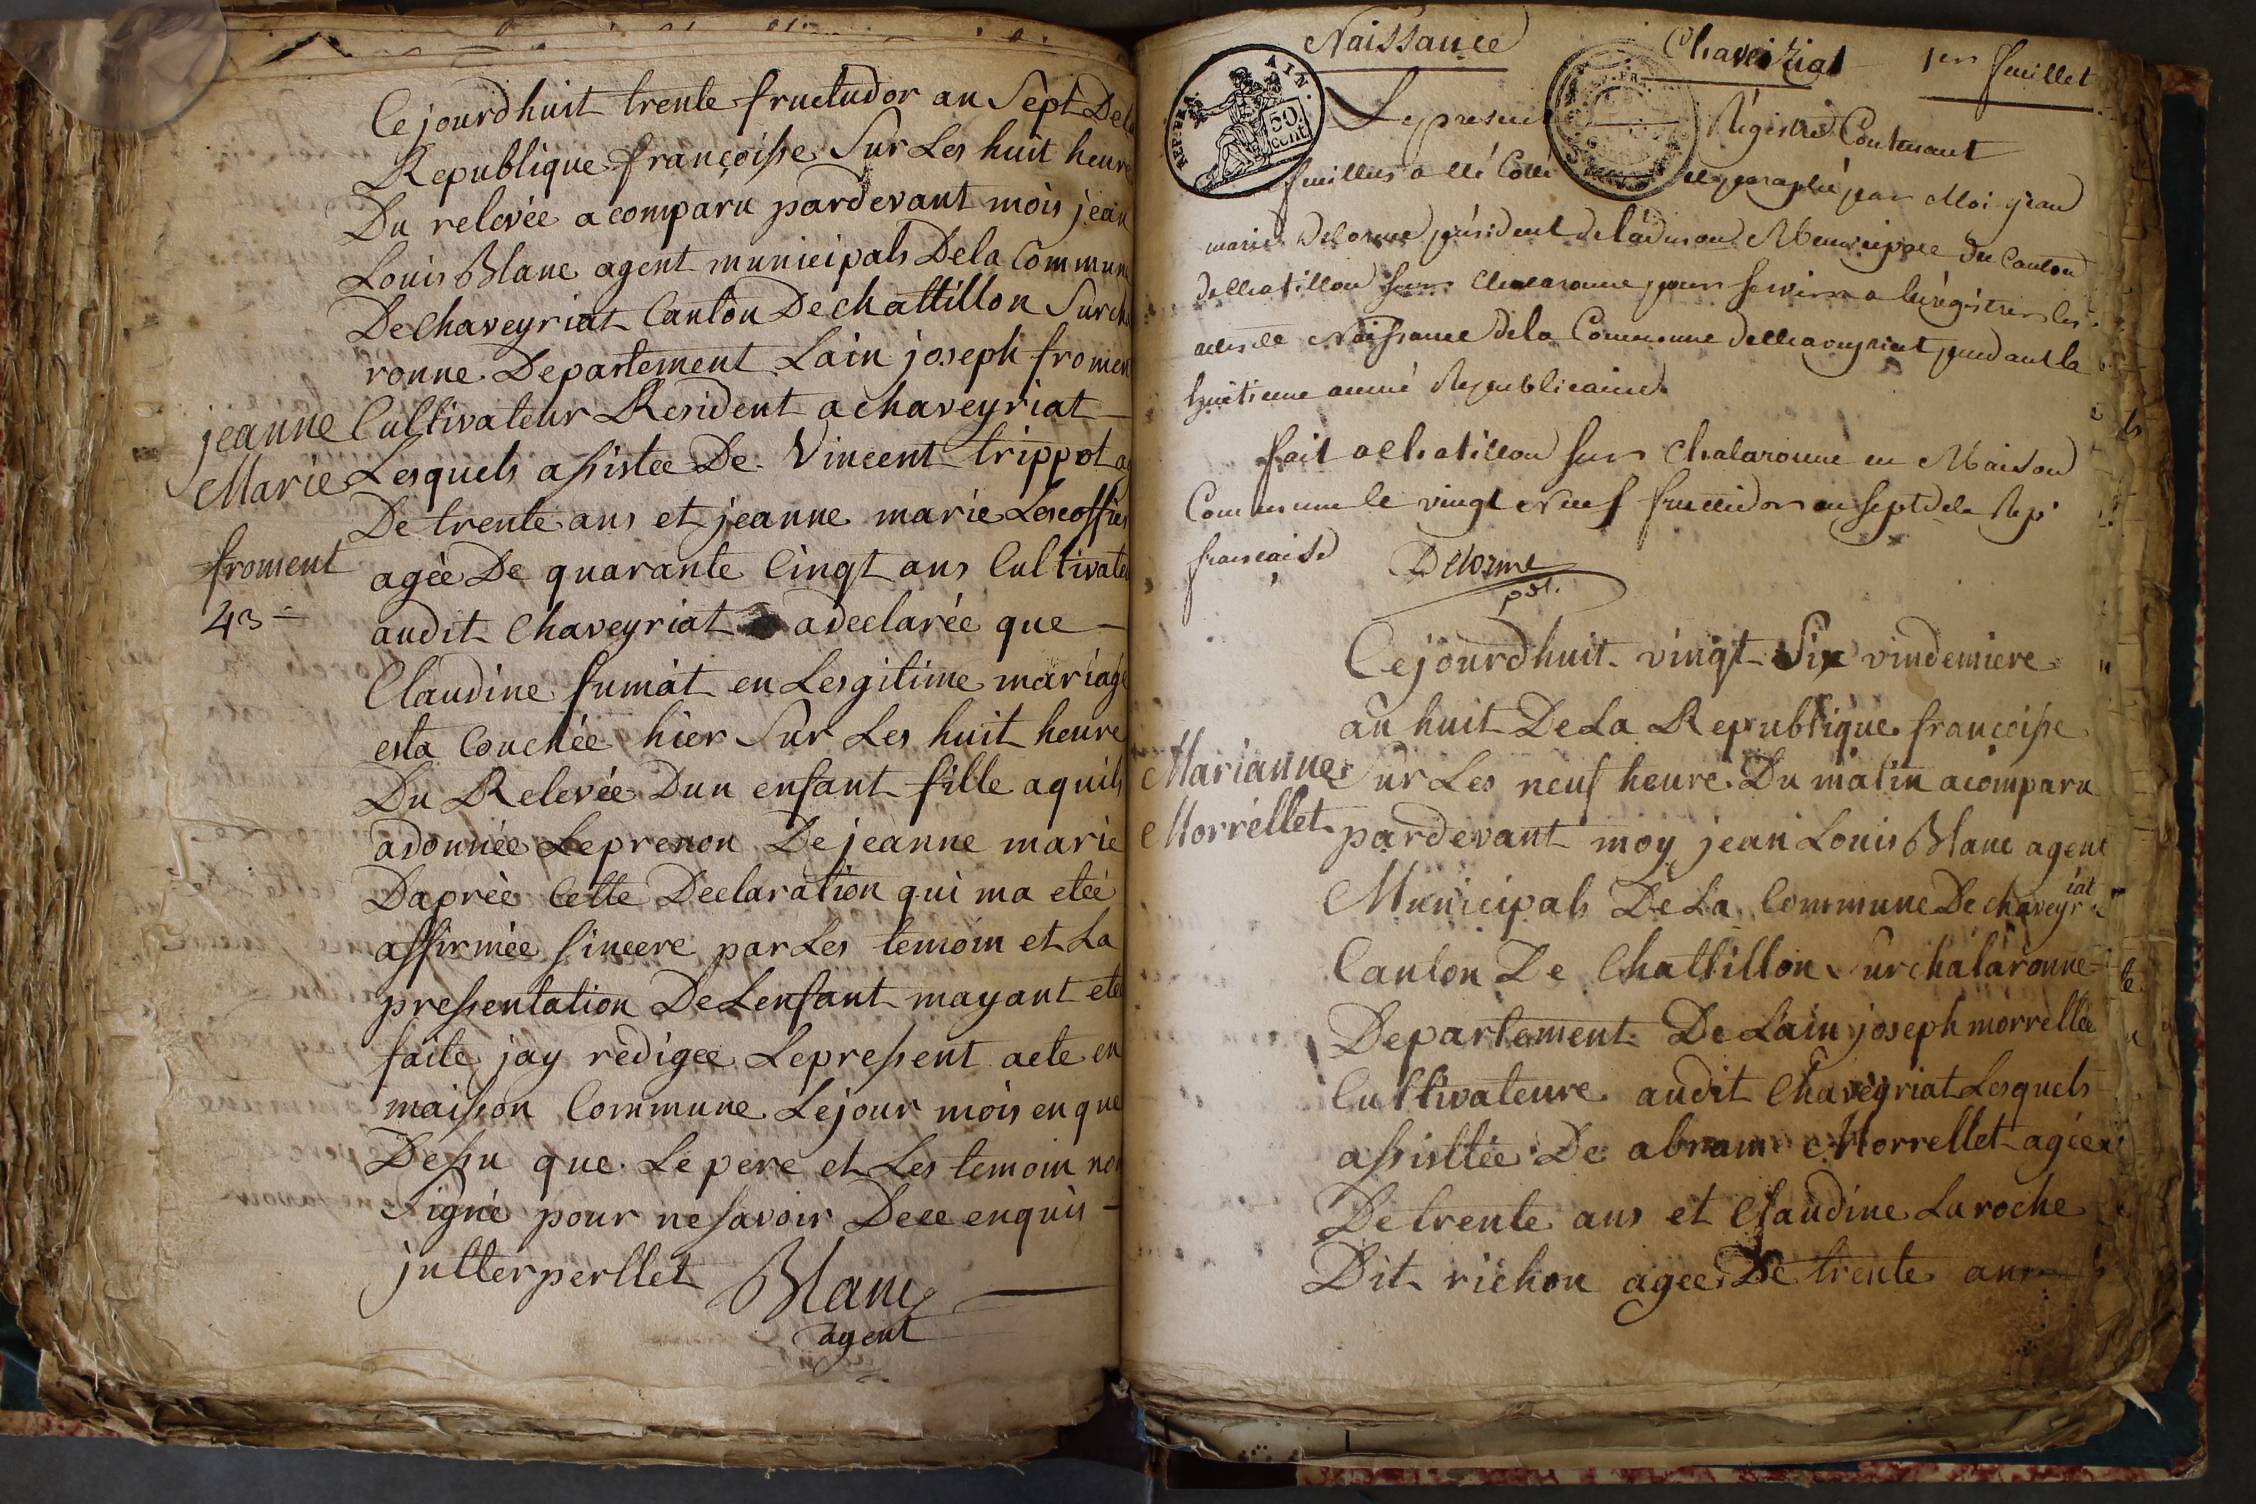 Cejourdhuit trente fructudor an Sept De la
Republique françoisse Sur Les huit heure
Du relevée acomparu pardevant mois jean
Louis Blanc agent municipals Dela Commune
De chaveyriat Canton De chattillon Sur cha
ronne Departement Lain joseph froment
jeanne
Cultivateur Resident a chaveyriat
Marie
Lesquels assistee De Vincent trippot ag
De trente ans et jeanne marie Lescoffier
froment
agèe De quarante Cinqt ans Cultivate
43
audit Chaveyriat adeclarée que
Claudine fumat en Lesgitime mariage
esta Couchée hier Sur Les huit heure
Du Relevée Dun enfant fille aquils
adonnée Leprenon De jeanne marie
Daprèe Cette Declaration qui ma eteé
affirmée sincere par Les temoin et La
pressentation De Lenfant mayant eté
faite jay rèdigee Lepressent acte en
maisson Commune Lejour mois en que
Dessu que Le pere et Les temoin non
Signé pour ne savoir Dece enquis
jutterperllet Blanc
agent
Naissance Chaveiriat 1er feuillet
REP. FRA. AIN. 50 cent
Le present Régistre Contenant
feuillets a été Cotté et paraphé par Moi jean
marie Delorme président de l'admon Municipale du Canton
de Chatillon sur Chalaronne pour servir a enrégistrer les
actes de Naissance de la Commune de Chaveyriat pendant la
huitieme année Republicaine
fait a Chatillon sur Chalaronne en Maison
Commune le vingt neuf fructidor an sept de la Rep.
francaise Delorme
pdt.
Cejourdhuit vingt Six vindemiere
an huit De La Republique françoisse
Marianne
Sur Les neuf heure Du matin acomparu
Morrellet
pardevant moy jean Louis Blanc agent
Municipals De La Commune De chaveyriat
Canton De Chattillon Sur chalaronne
Departement De Lain joseph morrellée
Cultivateure audit Chaveyriat Lesquels
assisttée De abram Morrellet agée
De trente ans et Claudine Laroche
Dit richon agee De trente ans